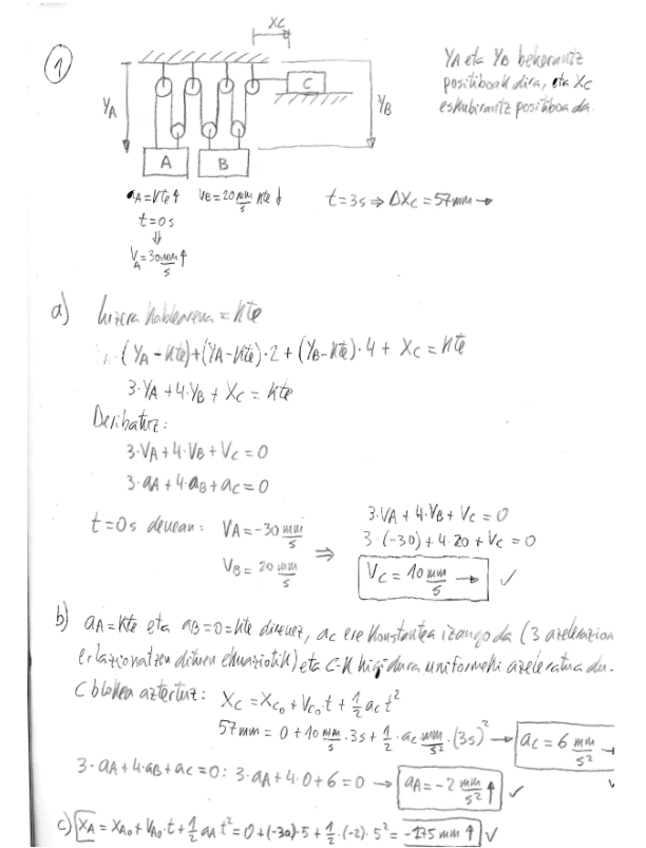 1
XC
YA eta YB beherantz
positiboak dira, eta XC
eskubirantz positiboa da.
YA
C
YB
A
B
aA = Kte ↑ VB = 20 mm/s Kte ↓
t = 3s ⇒ ΔXC = 57mm →
t = 0s
⇓
VA = 30 mm/s ↑
a) luzera kablearena = Kte
(YA - Kte) + (YA - Kte)·2 + (YB - Kte)·4 + XC = Kte
3·YA + 4·YB + XC = Kte
Deribatuz:
3·VA + 4·VB + VC = 0
3·aA + 4·aB + aC = 0
t = 0s denean: VA = -30 mm/s
VB = 20 mm/s
⇒
3·VA + 4·VB + VC = 0
3·(-30) + 4·20 + VC = 0
VC = 10 mm/s → ✓
b) aA = Kte eta aB = 0 = Kte direnez, aC ere konstantea izango da (3 azelerazioa
erlazionatzen dituen ekuaziotik) eta C-k higidura uniformeki azeleratua du.
C blokea aztertuz: XC = XC0 + VC0·t + 1/2 aC t²
57mm = 0 + 10 mm/s · 3s + 1/2 · aC mm/s² · (3s)² → aC = 6 mm/s² →
3·aA + 4·aB + aC = 0: 3·aA + 4·0 + 6 = 0 → aA = -2 mm/s² ↑ ✓
c) XA = XA0 + VA0·t + 1/2 aA t² = 0 + (-30)·5 + 1/2·(-2)·5² = -175 mm ↑ ✓